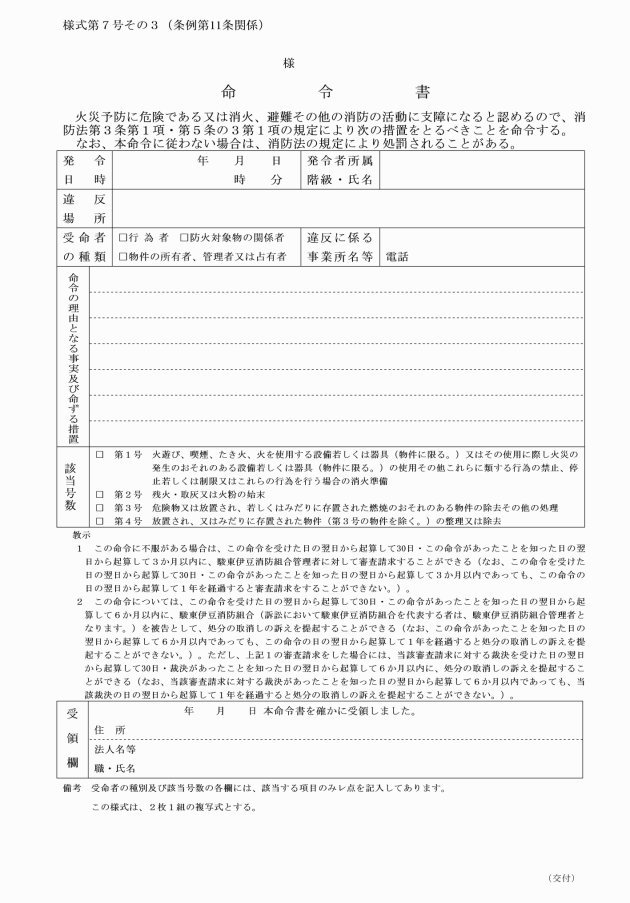 様式第７号その３（条例第11条関係）
様
命　令　書
　火災予防に危険である又は消火、避難その他の消防の活動に支障になると認めるので、消
防法第３条第１項・第５条の３第１項の規定により次の措置をとるべきことを命令する。
　なお、本命令に従わない場合は、消防法の規定により処罰されることがある。
発令日時　年　月　日　時　分
発令者所属階級・氏名
違反場所
受命者の種類
□行為者　□防火対象物の関係者
□物件の所有者、管理者又は占有者
違反に係る事業所名等　電話
命令の理由となる事実及び命ずる措置
該当号数
□　第１号　火遊び、喫煙、たき火、火を使用する設備若しくは器具（物件に限る。）又はその使用に際し火災の
発生のおそれのある設備若しくは器具（物件に限る。）の使用その他これらに類する行為の禁止、停
止若しくは制限又はこれらの行為を行う場合の消火準備
□　第２号　残火・取灰又は火粉の始末
□　第３号　危険物又は放置され、若しくはみだりに存置された燃焼のおそれのある物件の除去その他の処理
□　第４号　放置され、又はみだりに存置された物件（第３号の物件を除く。）の整理又は除去
教示
１　この命令に不服がある場合は、この命令を受けた日の翌日から起算して30日・この命令があったことを知った日の翌
日から起算して３か月以内に、駿東伊豆消防組合管理者に対して審査請求することができる（なお、この命令を受けた
日の翌日から起算して30日・この命令があったことを知った日の翌日から起算して３か月以内であっても、この命令の
日の翌日から起算して１年を経過すると審査請求をすることができない。）。
２　この命令については、この命令を受けた日の翌日から起算して30日・この命令があったことを知った日の翌日から起
算して６か月以内に、駿東伊豆消防組合（訴訟において駿東伊豆消防組合を代表する者は、駿東伊豆消防組合管理者と
なります。）を被告として、処分の取消しの訴えを提起することができる（なお、この命令があったことを知った日の
翌日から起算して６か月以内であっても、この命令の日の翌日から起算して１年を経過すると処分の取消しの訴えを提
起することができない。）。ただし、上記１の審査請求をした場合には、当該審査請求に対する裁決を受けた日の翌日
から起算して30日・裁決があったことを知った日の翌日から起算して６か月以内に、処分の取消しの訴えを提起するこ
とができる（なお、当該審査請求に対する裁決があったことを知った日の翌日から起算して６か月以内であっても、当
該裁決の日の翌日から起算して１年を経過すると処分の取消しの訴えを提起することができない。）。
受領欄
年　月　日 本命令書を確かに受領しました。
住　所
法人名等
職・氏名
備考　受命者の種別及び該当号数の各欄には、該当する項目のみレ点を記入してあります。
この様式は、２枚１組の複写式とする。
（交付）